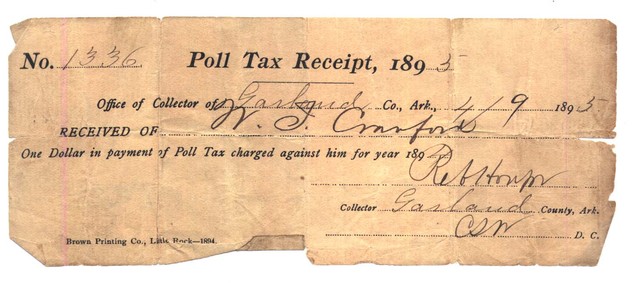 No. 1336. Poll Tax Receipt, 1895
Office of Collector of Garland Co., Ark., 4/9 1895.
RECEIVED OF W. T. Craford
One Dollar in payment of Poll Tax charged against him for year 189
Collector Garland County, Ark.
CSW D. C.
Brown Printing Co., Little Rock—1894.